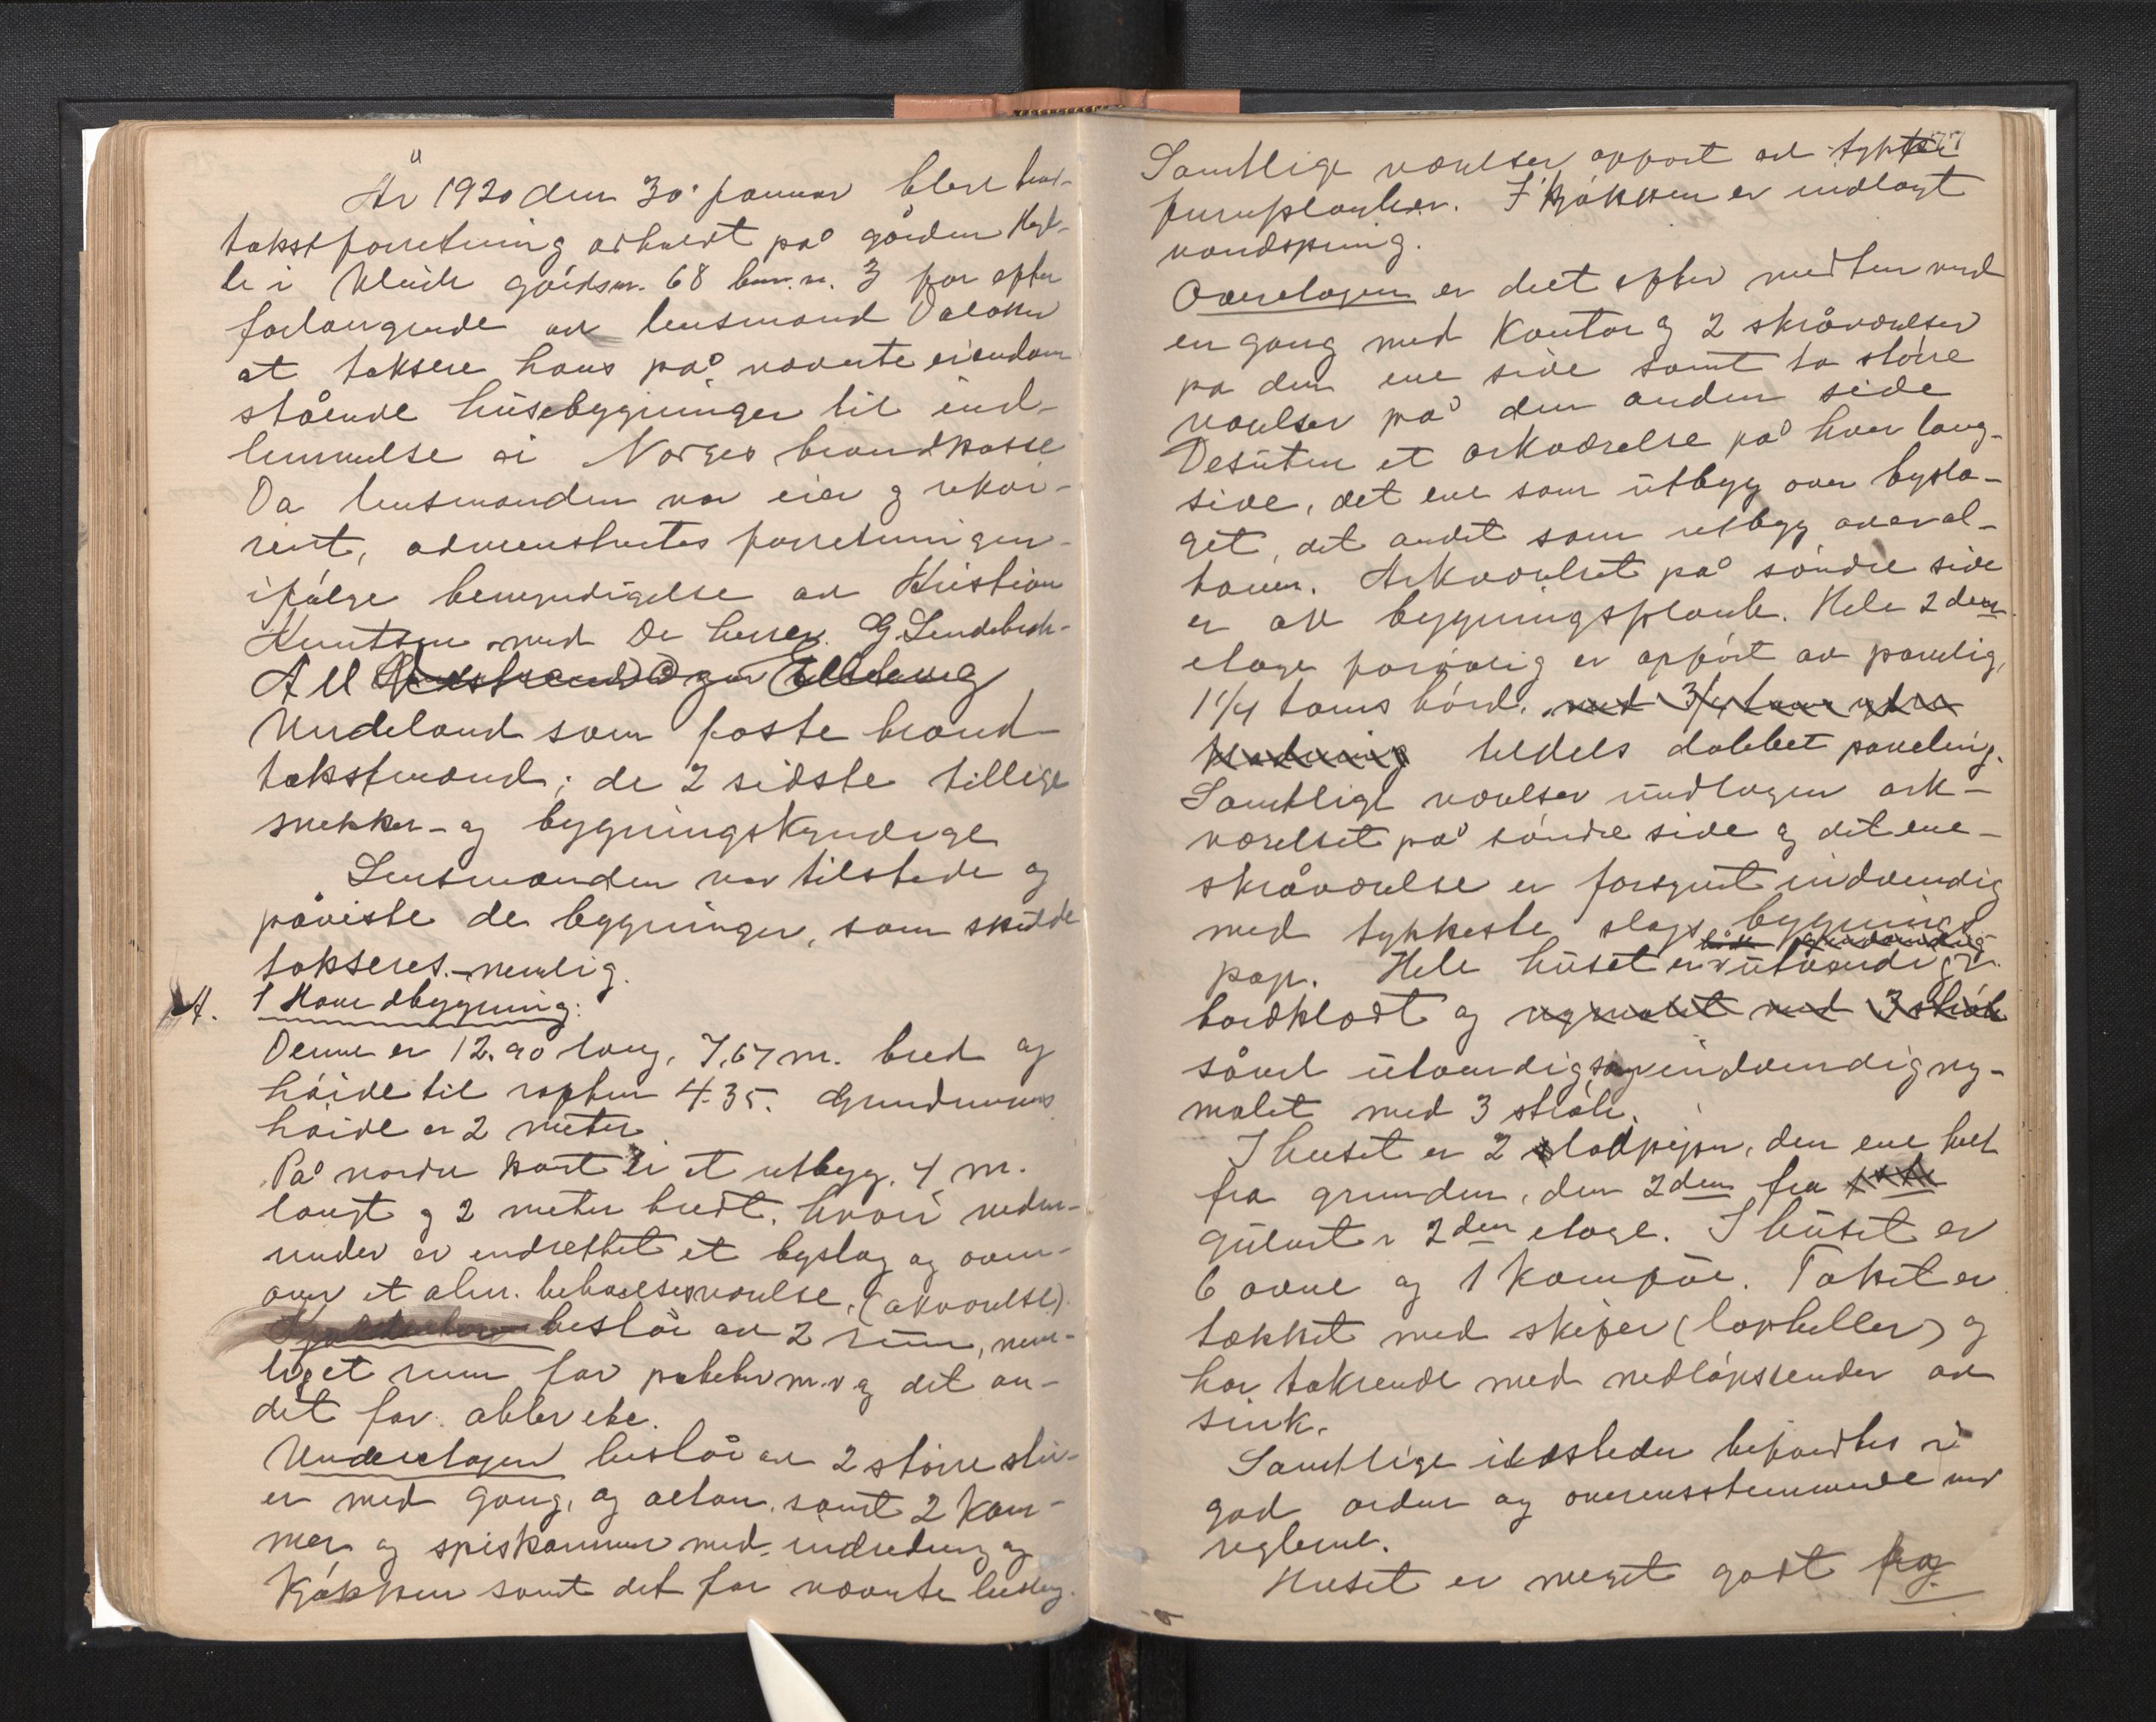 År 1920 den 30 januar blev brand-
takstforretning avholdt på gården
le i gårdsnr. 68 br.nr. 3 for efter
forlangende av lensmand
at taksere hans på nævnte eiendom
stående husebygninger til ind-
lemmelse i Norges brandkasse
Da lensmanden var eier og rekvi-
rent, administrertes forretningen
ifølge bemyndigelse av Kristian
Knutsen med De herrer G.
A M
som faste brand-
takstmænd; de 2 sidste tillige
snekker- og bygningskyndige
Lensmanden var tilstede og
påviste de bygninger, som skulde
takseres.- nemlig.
A. 1 Hovedbygning:
Denne er 12.90 lang, 7,67 m. bred og
høide til raften 4.35. Grundmurens
høide er 2 meter
På nordre kant er et utbygg. 4 m.
langt og 2 meter bredt, hvori neden-
under er indrettet et byslag og oven-
over et alm. beboelsesværelse. (arkværelse).
Kjælderen består av 2 rum, nem-
lig et rum for poteter m.v og det an-
det for
Underetagen består av 2 større stu-
er med gang, og altan, samt 2 kam-
mer og spiskammer med indredning og
Kjøkken samt det før nævnte byslag.
77
Samtlige værelser opført av tykke
furuplanker. I kjøkken er indlagt
vandspring.
Overetagen er delt efter midten ved
en gang med Kontor og 2 skråværelser
på den ene side samt to større
værelser på den anden side
Desuten et arkværelse på hver lang-
side, det ene som utbygg over bysla-
get, det andet som utbygg over al-
tanen. Arkværelset på søndre side
er av bygningsplank. Hele 2den
etage forøvrig er opført av panelig,
1 1/4 toms bord. med 3/4 toms ydre
klædning tildels dobbet paneling.
Samtlige værelser undtagen ark-
værelset på søndre side og det ene-
skråværelse er forsynt indvendig
med tykkeste slags bygnings
pap. Hele huset er utvendig
bordklædt og nymalet med 3 strøk
såvel utvendig som indvendig ny-
malet med 3 strøk.
I huset er 2 piper, den ene helt
fra grunden, den 2den fra 1ste
gulvet i 2den etage. I huset er
6 ovne og 1 komfur. Taket er
tækket med skifer (lapheller) og
har takrende med nedløpsrender av
sink.
Samtlige ildsteder befandtes i
god orden og overensstemmende med
reglerne.
Huset er meget godt